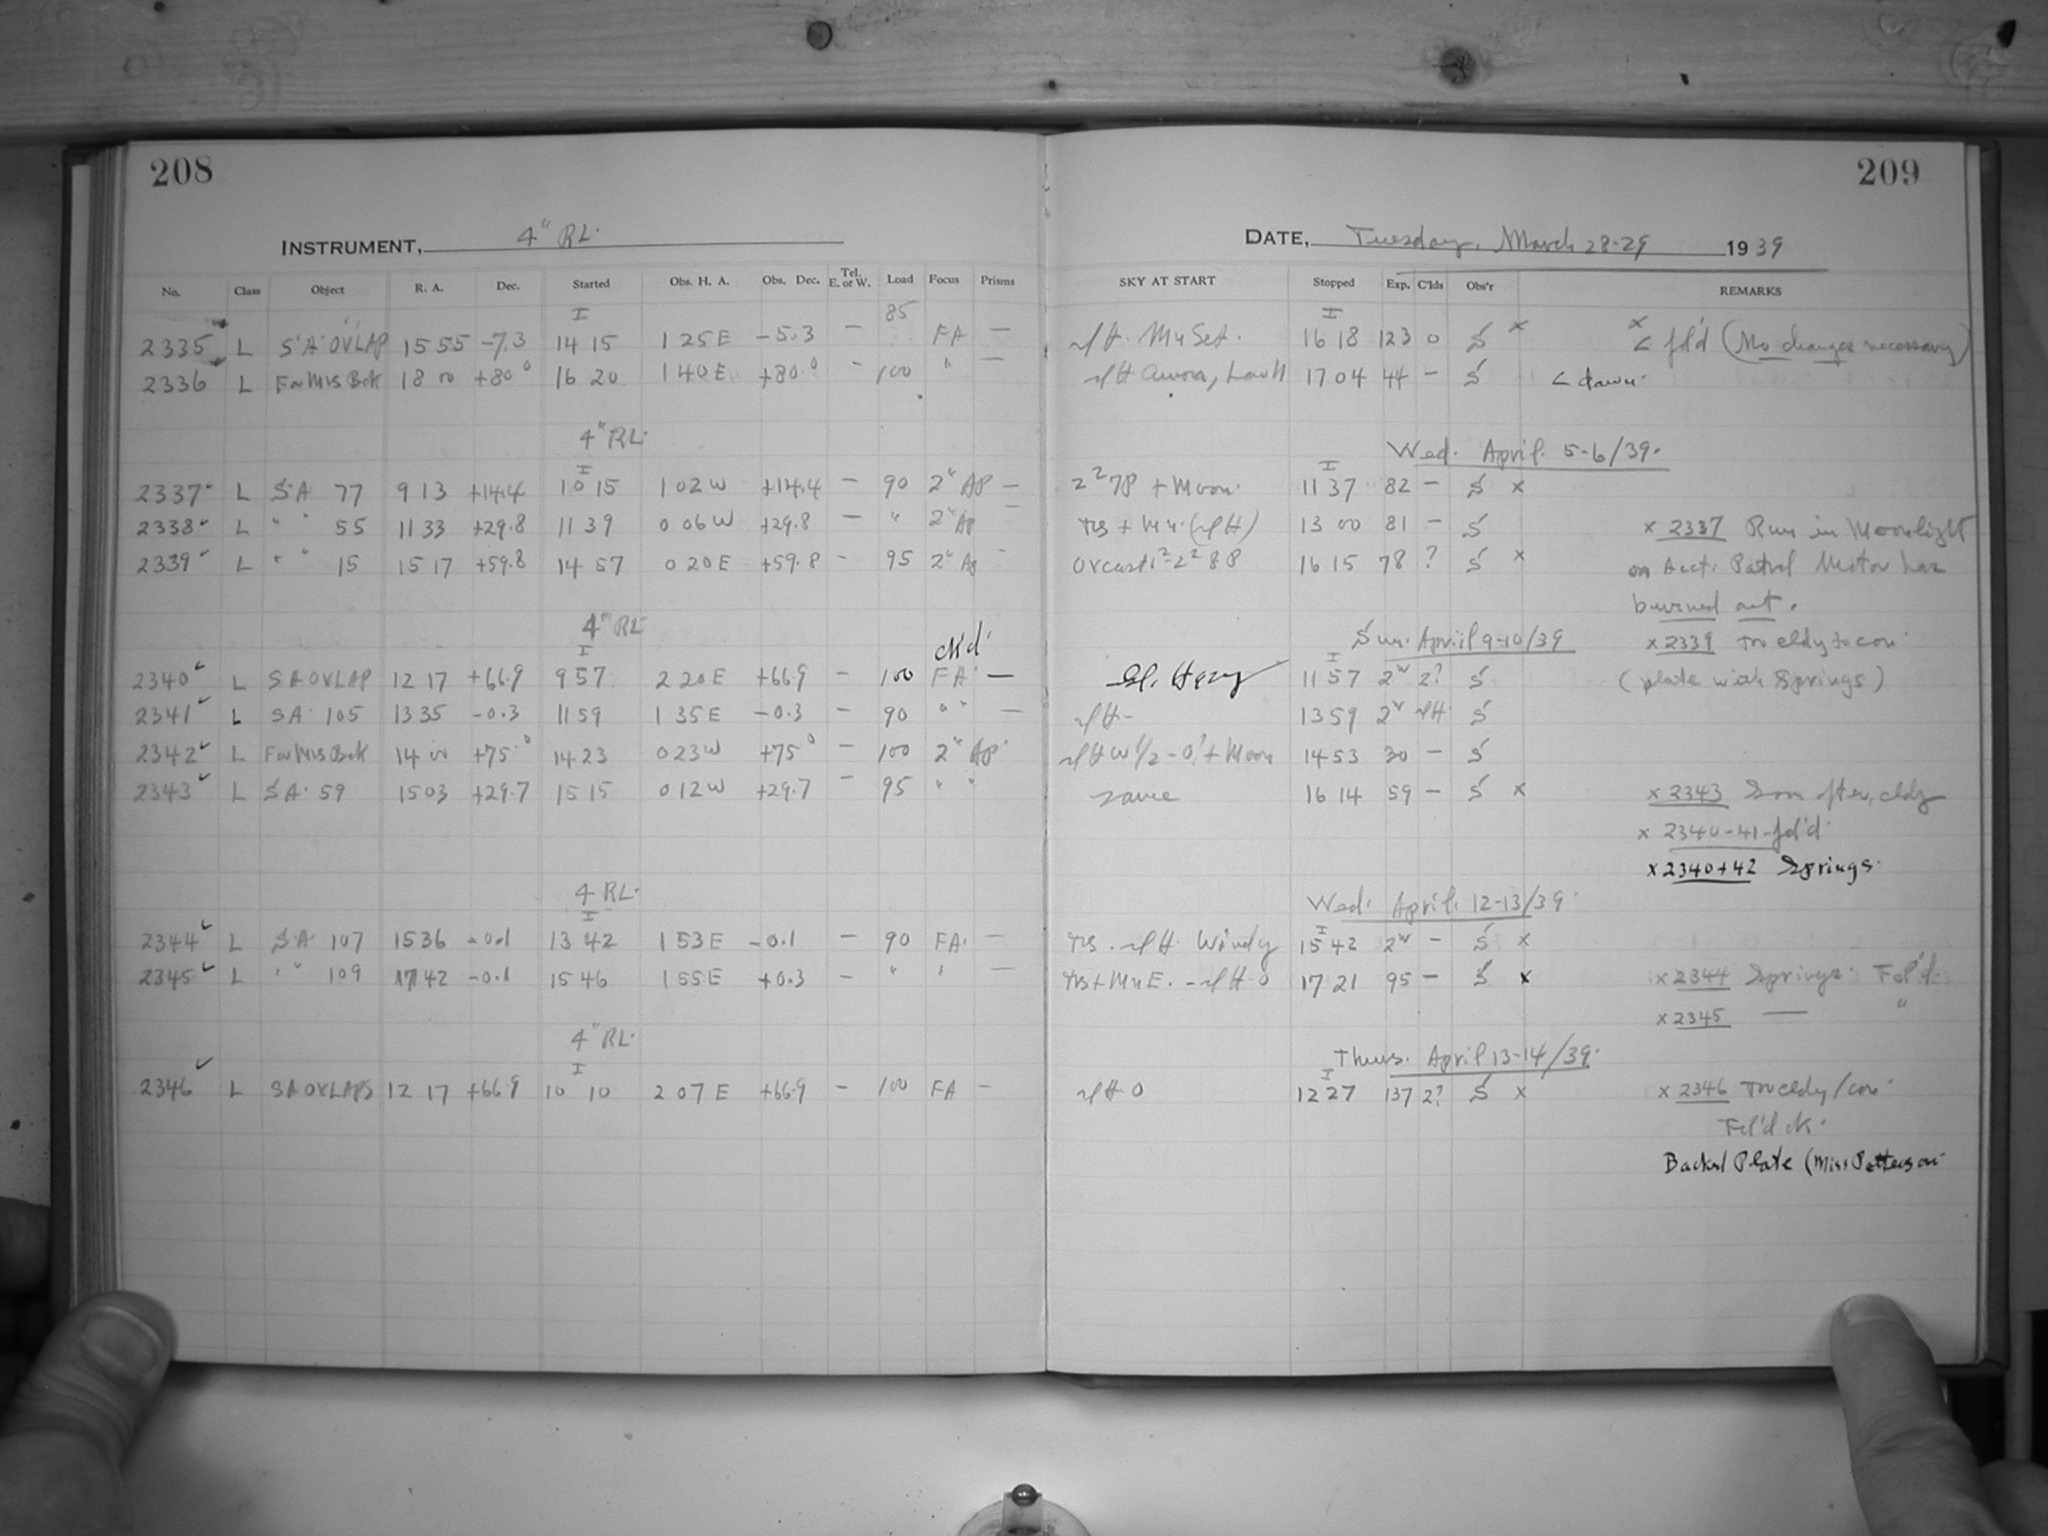 208
209
INSTRUMENT, 4" RL.
DATE, Tuesday, March 28-29 1939
No. Class Object R. A. Dec. Started Obs. H. A. Obs. Dec. Tel. E. or W. Load Focus Prisms SKY AT START Stopped Exp. C'lds Obs'r REMARKS
I 85 I
2335 L S.A. OVLAP 15 55 -7.3 14 15 1 25 E -5.3 — FA — Mn Set. 16 18 123 0 S x x < fcl'd (No changes necessary)
2336 L For Mrs Bok 18 00 +80° 16 20 1 40 E +80.° — 100 " — Aurora, Low H 17 04 44 — S < dawn.
4" RL. Wed. April. 5-6/39.
I I
2337 L S.A 77 9 13 +14.4 10 15 1 02 W +14.4 — 90 2" AP — + Moon. 11 37 82 — S x
2338 L " " 55 11 33 +29.8 11 39 0 06 W +29.8 — " 2" Ap — + Mn. 13 00 81 — S x 2337 Run in Moonlight
2339 L " " 15 15 17 +59.8 14 57 0 20 E +59.8 — 95 2" Ap - 16 15 78 ? S x on Acct. Patrol Motor has
burned out.
4" RL Sun. April 9-10/39 x 2339 Too cldy to con.
I ck'd I
2340 L SA OVLAP 12 17 +66.9 9 57 2 20 E +66.9 — 100 FA — Sl. Hazy 11 57 2ʰ 2? S (plate with Springs)
2341 L SA. 105 13 35 -0.3 11 59 1 35 E -0.3 — 90 " " — 13 59 2ʰ S
2342 L For Mrs Bok 14 00 +75.° 14 23 0 23 W +75° — 100 2" AP. + Moon 14 53 30 — S
2343 L S.A. 59 15 03 +29.7 15 15 0 12 W +29.7 — 95 " " same 16 14 59 — S x x 2343 Soon after, cldy
x 2340-41-fcl'd
x 2340+42 Springs.
4 RL. Wed. April. 12-13/39.
I I
2344 L S.A. 107 15 36 -0.1 13 42 1 53 E -0.1 — 90 FA. — Windy 15 42 2ʰ — S x
2345 L " " 109 17 42 -0.1 15 46 1 55 E +0.3 — " " — + Mn E. 17 21 95 — S x x 2344 Springs. Fcl'd.
x 2345 — "
4" RL. Thurs. April 13-14/39.
I I
2346 L SA OVLAPS 12 17 +66.9 10 10 2 07 E +66.9 — 100 FA — 12 27 137 2? S x x 2346 Too cldy/con.
Fcl'd ok.
Backed Plate (Miss Patterson